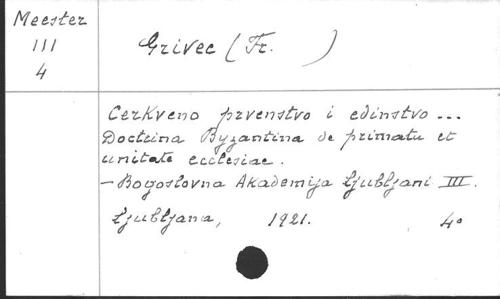 Meester
III
4
Grivec (Fr. )
Cerkveno prvenstvo i edinstvo ...
Doctrina Byzantina de primatu et
unitate ecclesiae.
- Bogoslovna Akademija Ljubljani III.
Ljubljana, 1921. 4°